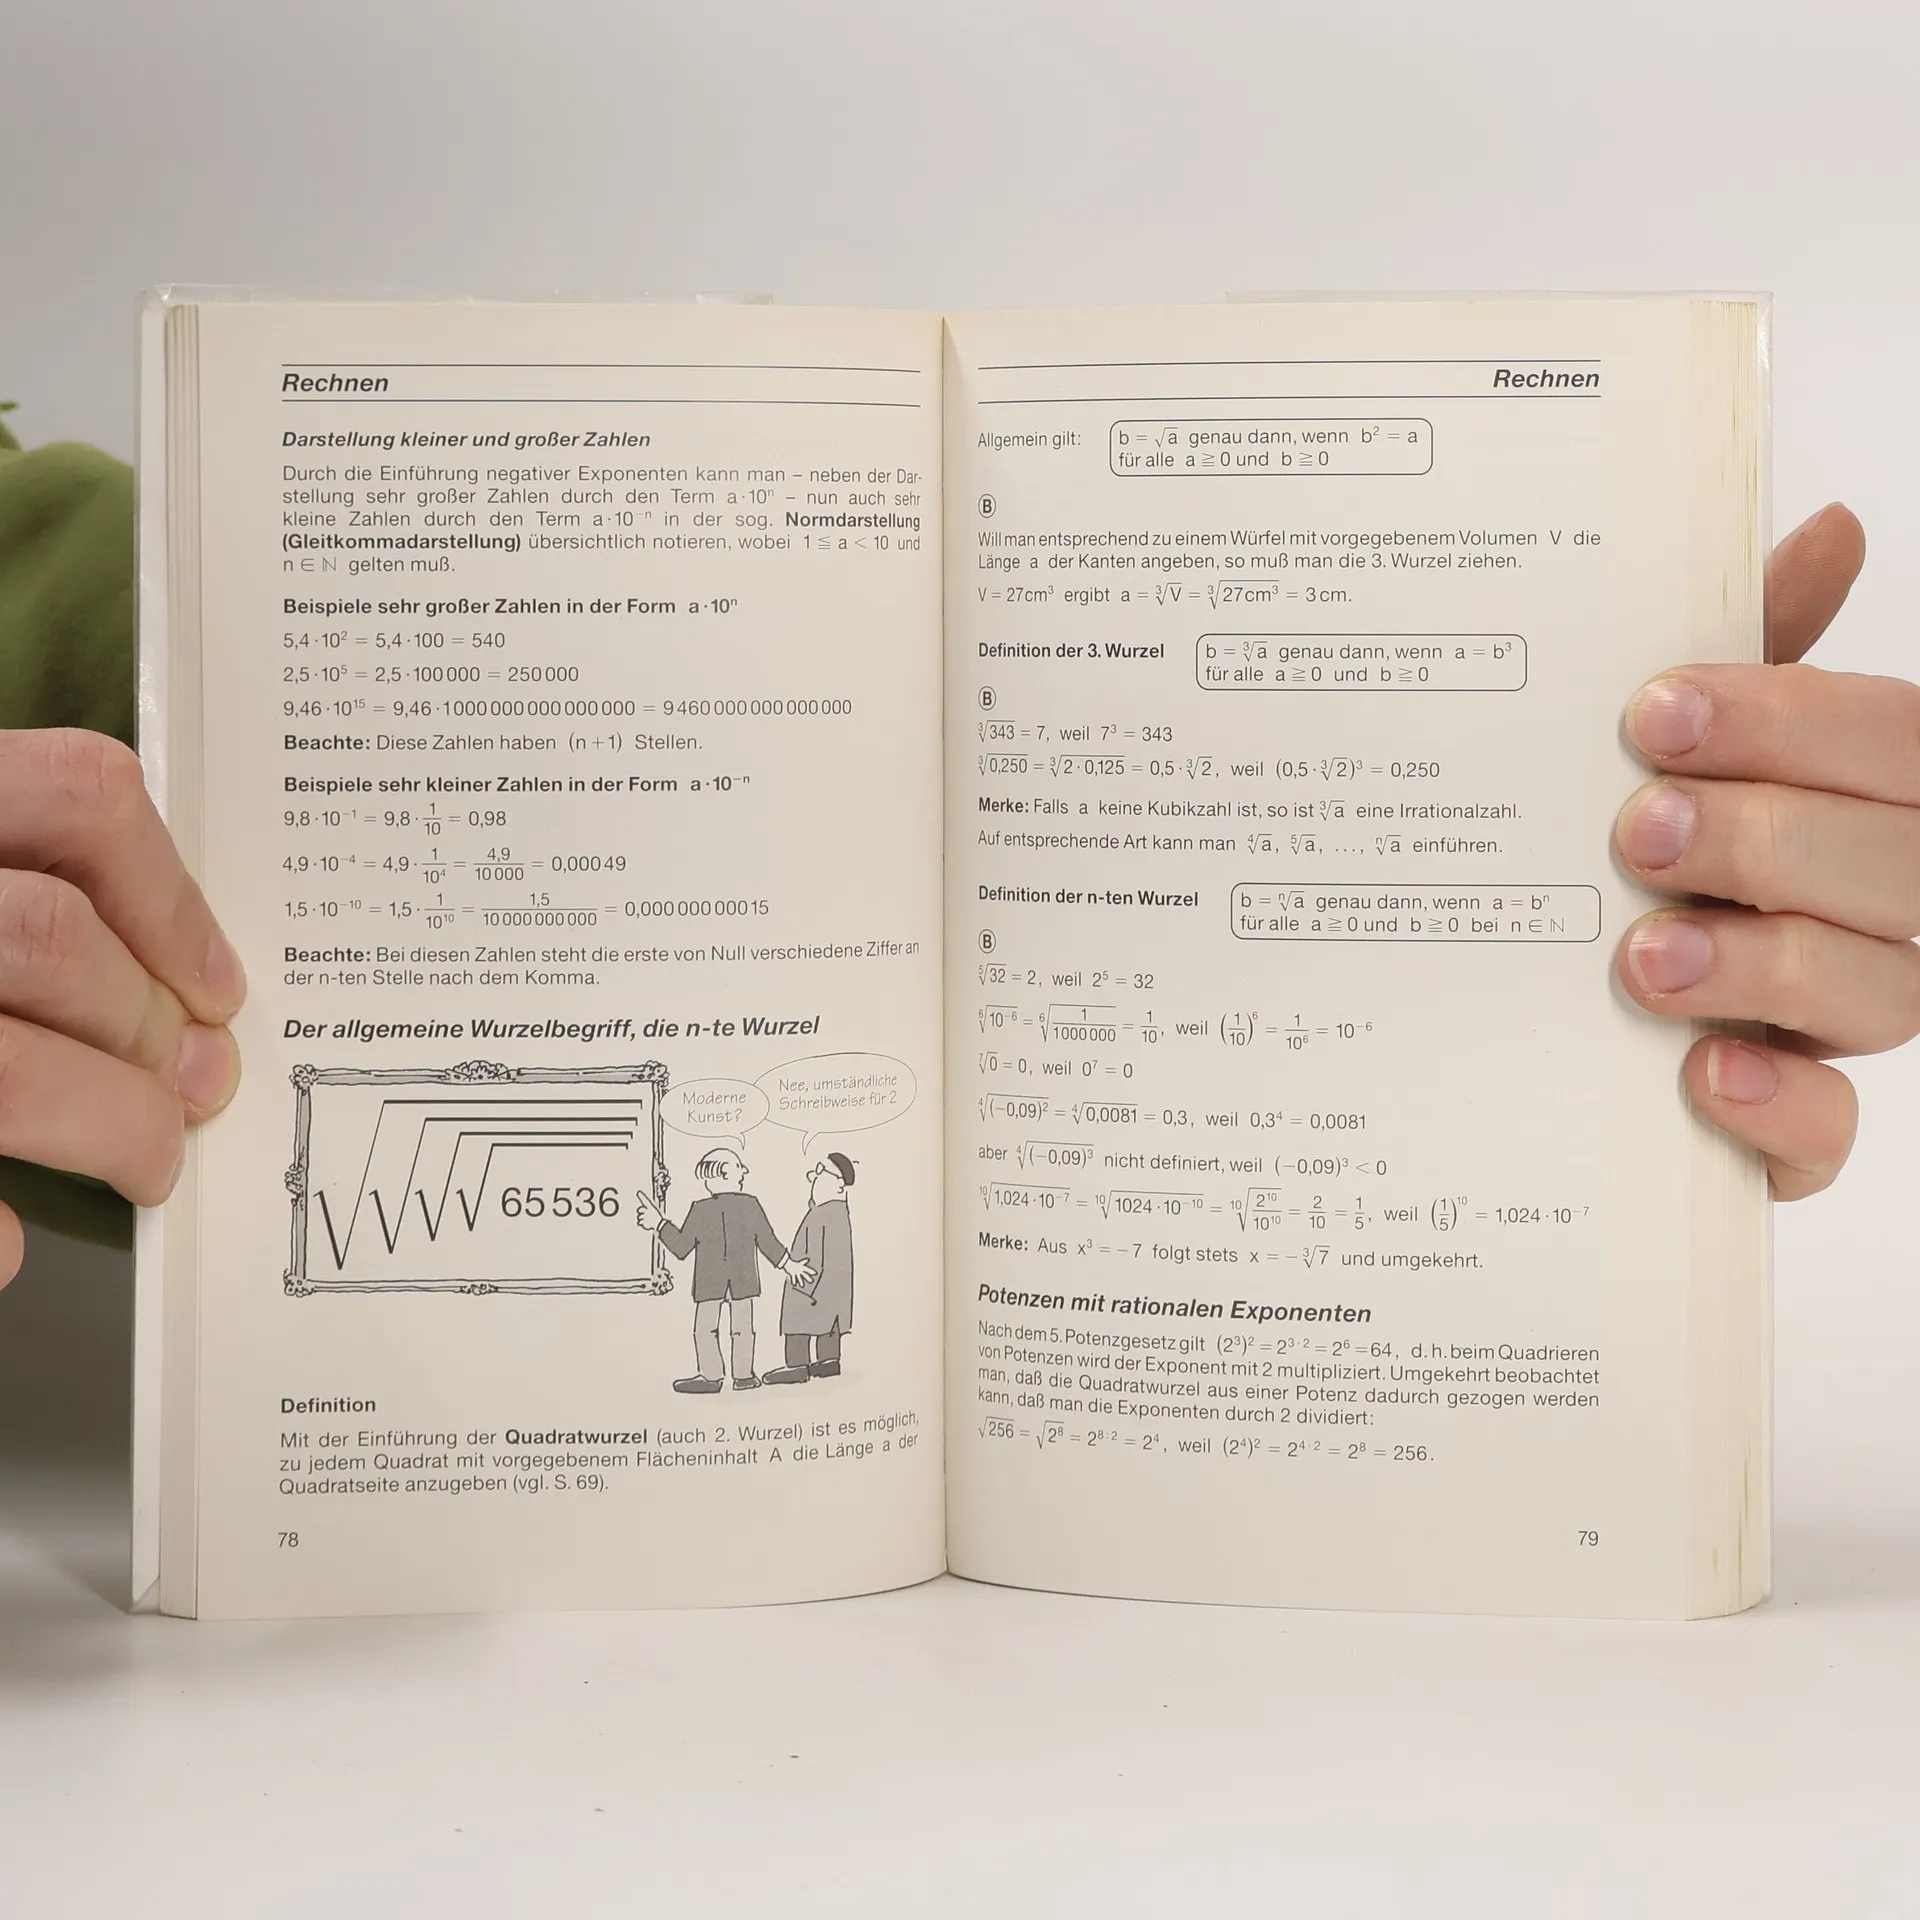 Rechnen
Darstellung kleiner und großer Zahlen
Durch die Einführung negativer Exponenten kann man – neben der Dar-
stellung sehr großer Zahlen durch den Term a·10ⁿ – nun auch sehr
kleine Zahlen durch den Term a·10⁻ⁿ in der sog. Normdarstellung
(Gleitkommadarstellung) übersichtlich notieren, wobei 1 ≦ a < 10 und
n ∈ ℕ gelten muß.
Beispiele sehr großer Zahlen in der Form a·10ⁿ
5,4·10² = 5,4·100 = 540
2,5·10⁵ = 2,5·100000 = 250000
9,46·10¹⁵ = 9,46·1000000000000000 = 9460000000000000
Beachte: Diese Zahlen haben (n+1) Stellen.
Beispiele sehr kleiner Zahlen in der Form a·10⁻ⁿ
9,8·10⁻¹ = 9,8·1/10 = 0,98
4,9·10⁻⁴ = 4,9·1/10⁴ = 4,9/10000 = 0,00049
1,5·10⁻¹⁰ = 1,5·1/10¹⁰ = 1,5/10000000000 = 0,00000000015
Beachte: Bei diesen Zahlen steht die erste von Null verschiedene Ziffer an
der n-ten Stelle nach dem Komma.
Der allgemeine Wurzelbegriff, die n-te Wurzel
Moderne
Kunst?
Nee, umständliche
Schreibweise für 2
√√√√65536
Definition
Mit der Einführung der Quadratwurzel (auch 2. Wurzel) ist es möglich,
zu jedem Quadrat mit vorgegebenem Flächeninhalt A die Länge a der
Quadratseite anzugeben (vgl. S. 69).
78
Rechnen
Allgemein gilt: b = √a genau dann, wenn b² = a
für alle a ≧ 0 und b ≧ 0
Ⓑ
Will man entsprechend zu einem Würfel mit vorgegebenem Volumen V die
Länge a der Kanten angeben, so muß man die 3. Wurzel ziehen.
V = 27cm³ ergibt a = ³√V = ³√27cm³ = 3cm.
Definition der 3. Wurzel b = ³√a genau dann, wenn a = b³
für alle a ≧ 0 und b ≧ 0
Ⓑ
³√343 = 7, weil 7³ = 343
³√0,250 = ³√2·0,125 = 0,5·³√2, weil (0,5·³√2)³ = 0,250
Merke: Falls a keine Kubikzahl ist, so ist ³√a eine Irrationalzahl.
Auf entsprechende Art kann man ⁴√a, ⁵√a, ..., ⁿ√a einführen.
Definition der n-ten Wurzel b = ⁿ√a genau dann, wenn a = bⁿ
für alle a ≧ 0 und b ≧ 0 bei n ∈ ℕ
Ⓑ
⁵√32 = 2, weil 2⁵ = 32
⁶√10⁻⁶ = ⁶√1/1000000 = 1/10, weil (1/10)⁶ = 1/10⁶ = 10⁻⁶
⁷√0 = 0, weil 0⁷ = 0
⁴√(−0,09)² = ⁴√0,0081 = 0,3, weil 0,3⁴ = 0,0081
aber ⁴√(−0,09)³ nicht definiert, weil (−0,09)³ < 0
¹⁰√1,024·10⁻⁷ = ¹⁰√1024·10⁻¹⁰ = ¹⁰√2¹⁰/10¹⁰ = 2/10 = 1/5, weil (1/5)¹⁰ = 1,024·10⁻⁷
Merke: Aus x³ = −7 folgt stets x = −³√7 und umgekehrt.
Potenzen mit rationalen Exponenten
Nach dem 5. Potenzgesetz gilt (2³)² = 2³·² = 2⁶ = 64, d.h. beim Quadrieren
von Potenzen wird der Exponent mit 2 multipliziert. Umgekehrt beobachtet
man, daß die Quadratwurzel aus einer Potenz dadurch gezogen werden
kann, daß man die Exponenten durch 2 dividiert:
√256 = √2⁸ = 2⁸:² = 2⁴, weil (2⁴)² = 2⁴·² = 2⁸ = 256.
79